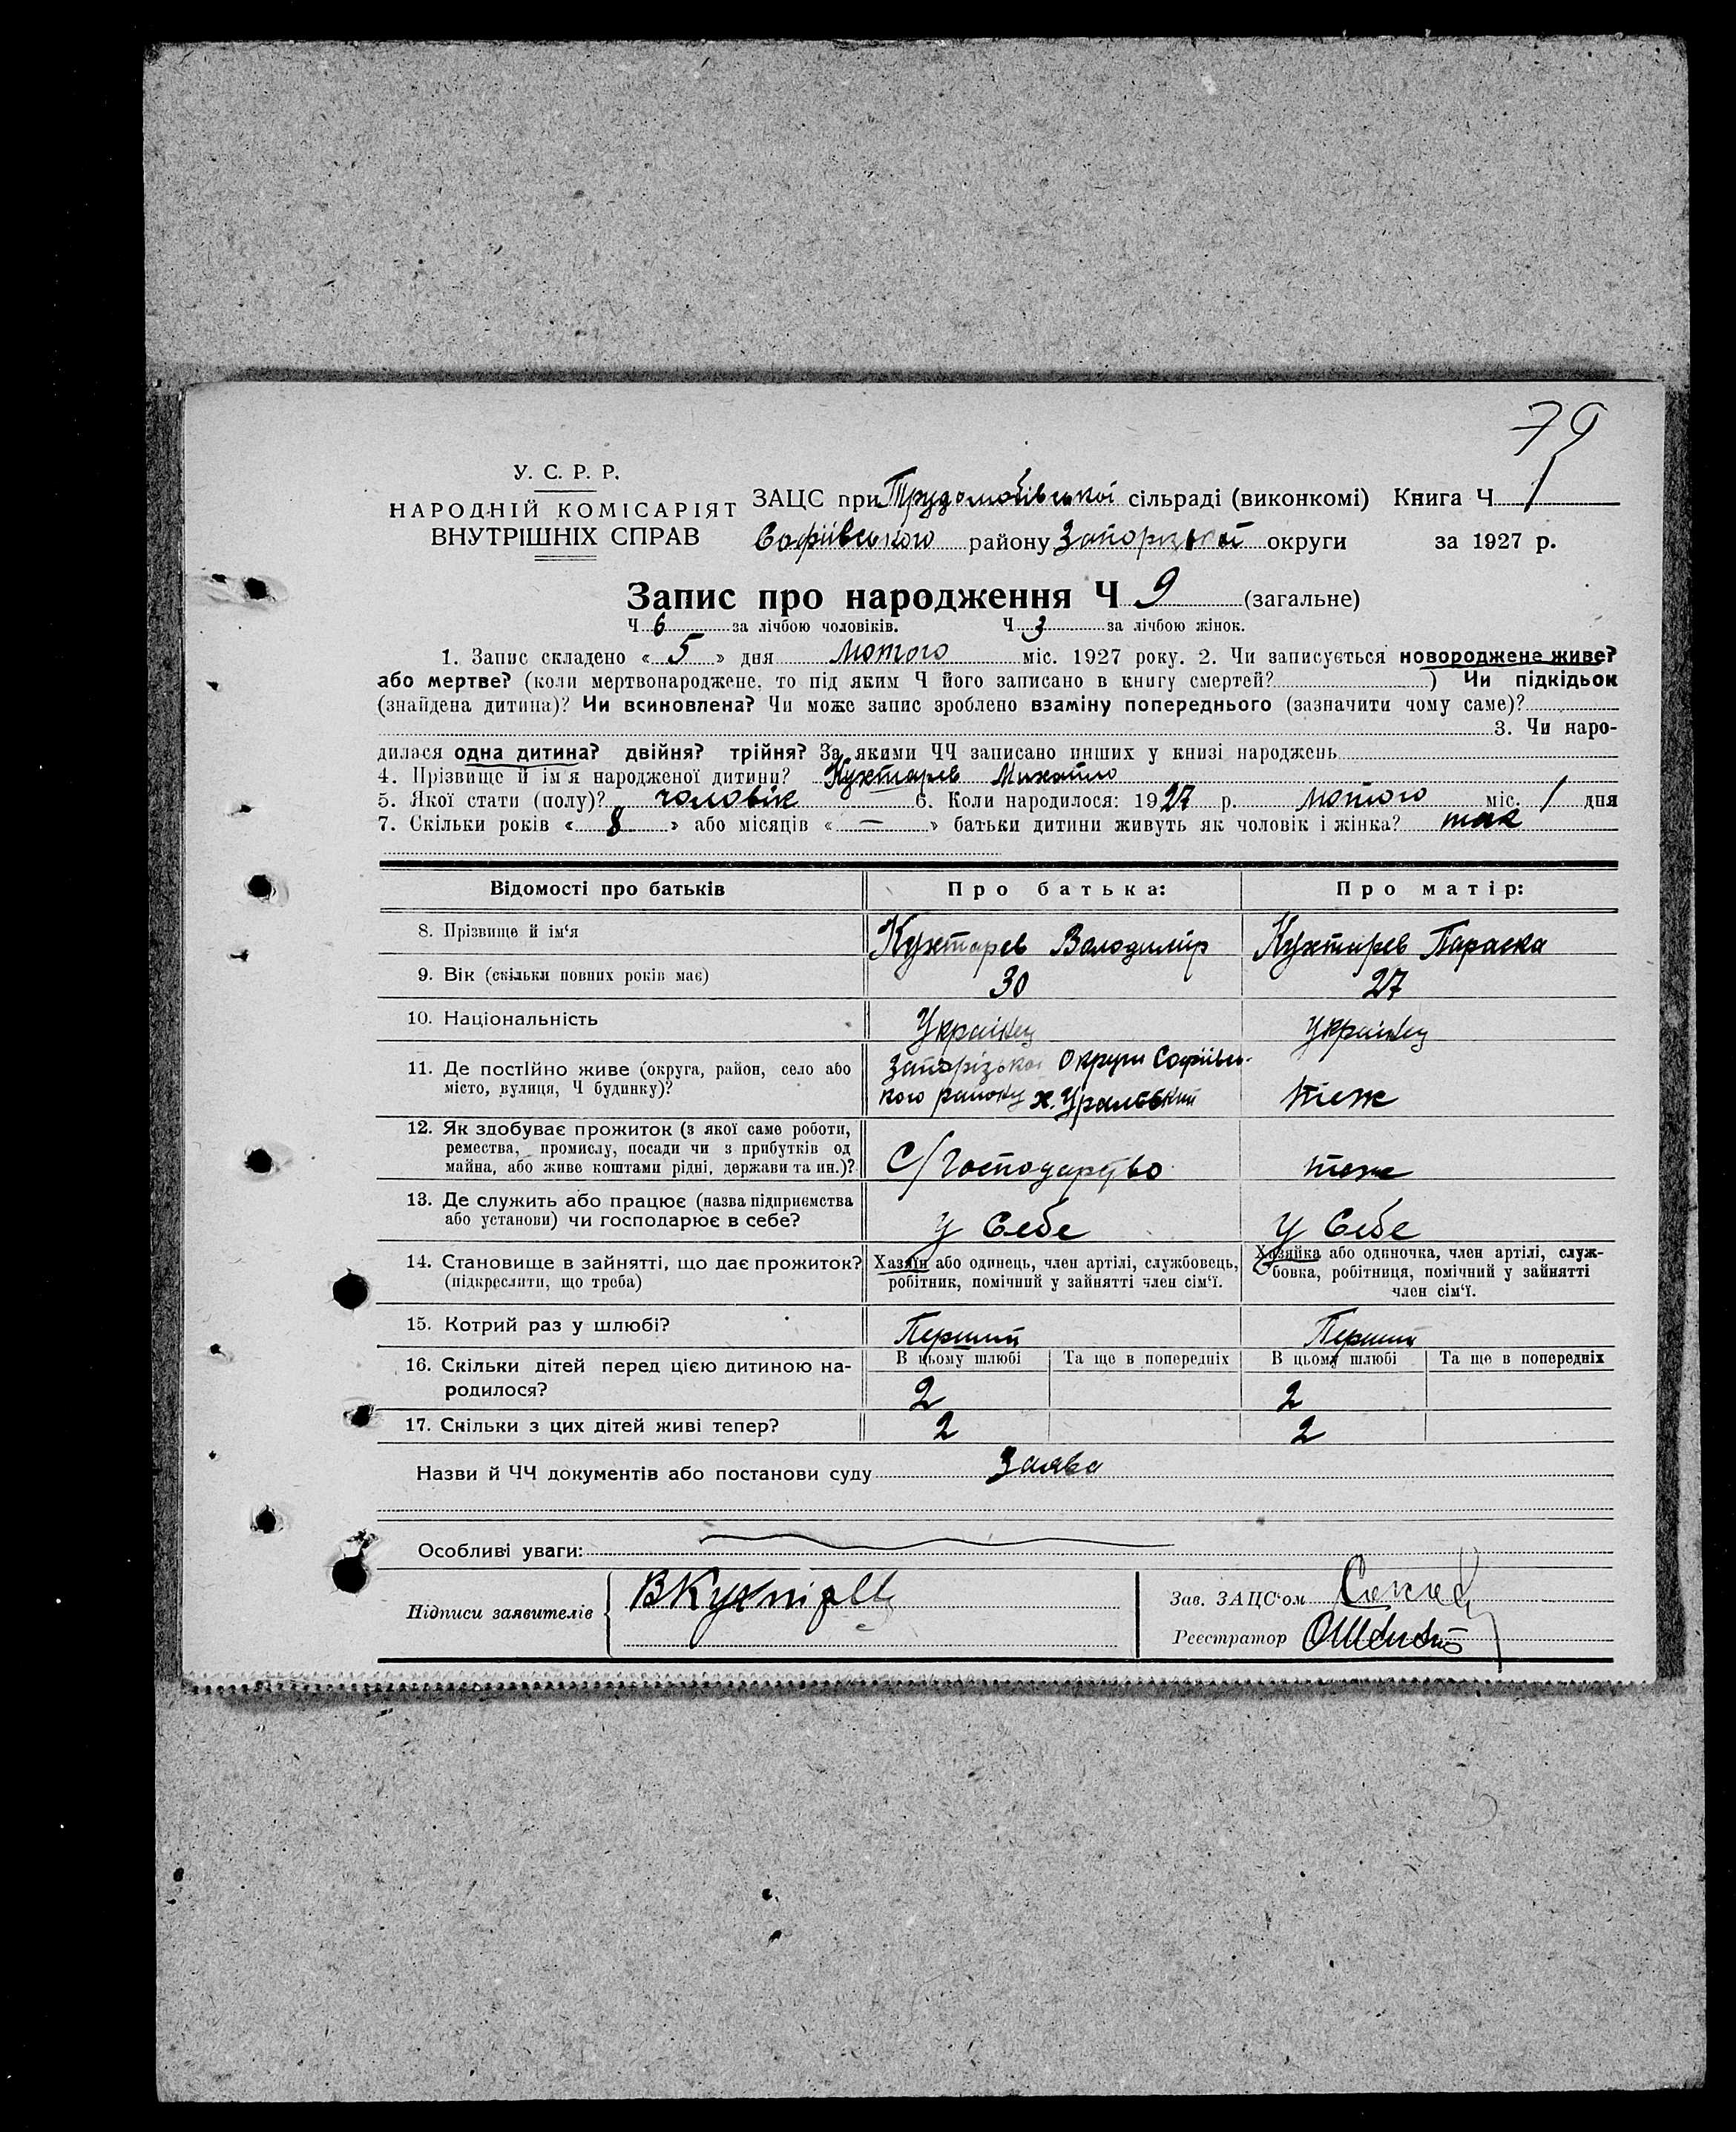 79
У. С. Р. Р.
НАРОДНІЙ КОМІСАРІЯТ
ВНУТРІШНІХ СПРАВ
ЗАЦС при Трудолюбівської сільраді (виконкомі) Книга Ч 1
Софіївського району Запорізької округи за 1927 р.
Запис про народження Ч 9 (загальне)
Ч 6 за лічбою чоловіків. Ч 3 за лічбою жінок.
1. Запис складено « 5 » дня лютого міс. 1927 року. 2. Чи записується новороджене живе?
або мертве? (коли мертвонароджене, то під яким Ч його записано в книгу смертей? ) Чи підкідьок
(знайдена дитина)? Чи всиновлена? Чи може запис зроблено взаміну попереднього (зазначити чому саме)?
3. Чи наро-
дилася одна дитина? двійня? трійня? За якими ЧЧ записано инших у книзі народжень
4. Прізвище й ім'я народженої дитини? Кухтарев Михайло
5. Якої стати (полу)? чоловік 6. Коли народилося: 1927 р. лютого міс. 1 дня
7. Скільки років « 8 » або місяців « — » батьки дитини живуть як чоловік і жінка? так
Відомості про батьків Про батька: Про матір:
8. Прізвище й ім'я Кухтарев Володимір Кухтарев Параска
9. Вік (скільки повних років має) 30 27
10. Національність Українец Українец
11. Де постійно живе (округа, район, село або Запорізької Округи Софіївсь-
місто, вулиця, Ч будинку)? кого району х. Уральський теж
12. Як здобуває прожиток (з якої саме роботи,
ремества, промислу, посади чи з прибутків од
майна, або живе коштами рідні, держави та ин.)? С/Господарство теж
13. Де служить або працює (назва підприємства
або установи) чи господарює в себе? у Себе у Себе
14. Становище в зайнятті, що дає прожиток? Хазяїн або одинець, член артілі, службовець, Хазяйка або одиночка, член артілі, служ-
(підкреслити, що треба) робітник, помічний у зайнятті член сім'ї. бовка, робітниця, помічний у зайнятті
член сім'ї.
15. Котрий раз у шлюбі? Перший Перший
16. Скільки дітей перед цією дитиною на- В цьому шлюбі Та ще в попередніх В цьому шлюбі Та ще в попередніх
родилося? 2 2
17. Скільки з цих дітей живі тепер? 2 2
Назви й ЧЧ документів або постанови суду Заява
Особливі уваги:
Підписи заявителів ВКухтарев
Зав. ЗАЦС'ом
Реєстратор